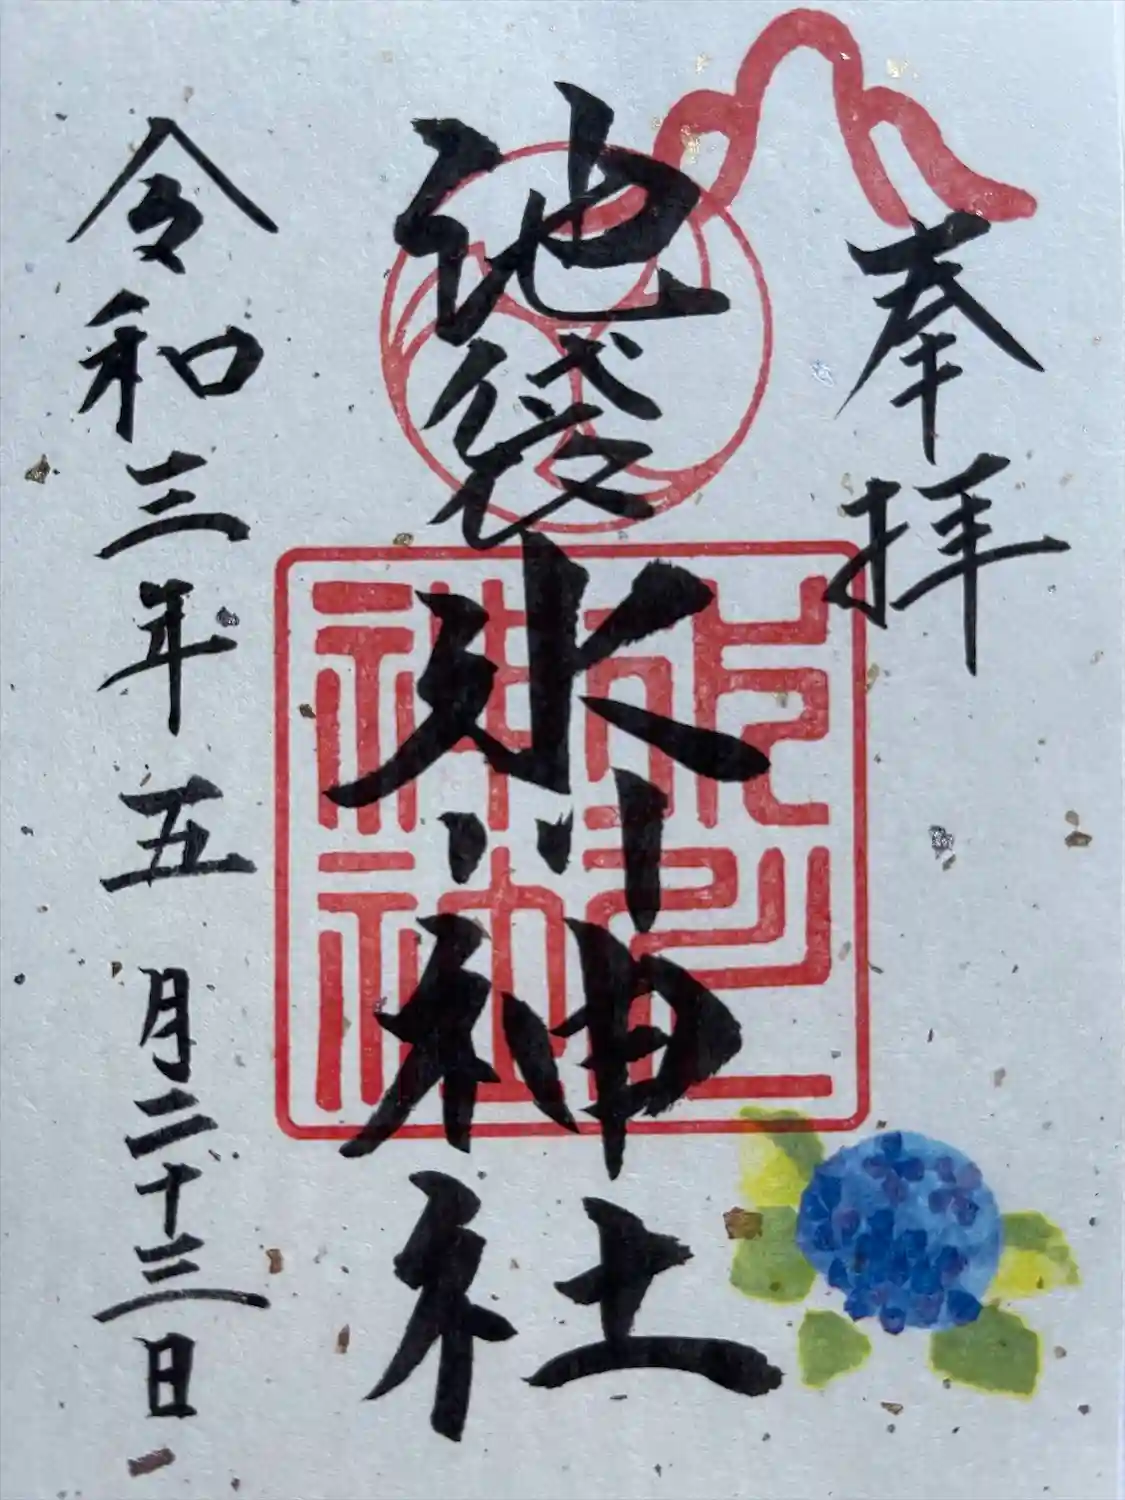 奉拝
池袋氷川神社
令和三年五月二十三日
氷川神社